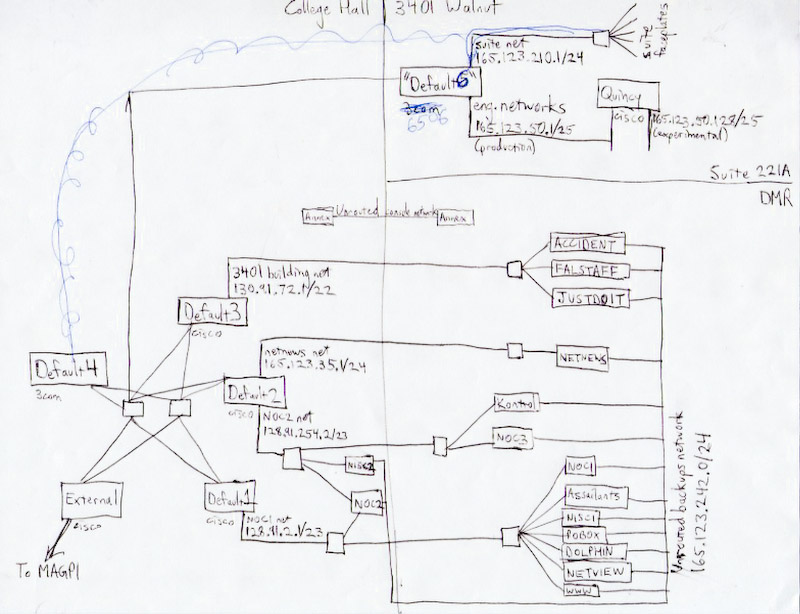 College Hall
3401 Walnut
suite net
165.123.210.1/24
faceplates
"Default6"
3com
6506
eng.networks
165.123.50.1/25
(production)
Quincy
cisco
165.123.50.128/25
(experimental)
Suite 221A
DMR
Annex
Unrouted console network
Annex
3401 building net
130.91.72.1/22
ACCIDENT
FALSTAFF
JUSTDOIT
Default3
cisco
netnews net
165.123.35.1/24
NETNEWS
Default4
3com
Default2
cisco
NOC2 net
128.91.254.2/23
Kontrol
NOC3
NISC2
NOC2
External
cisco
Default1
cisco
NOC1 net
128.91.2.1/23
NOC1
Assailants
NISC1
POBOX
DOLPHIN
NETVIEW
WWW
Unrouted backups network
165.123.242.0/24
To MAGPI